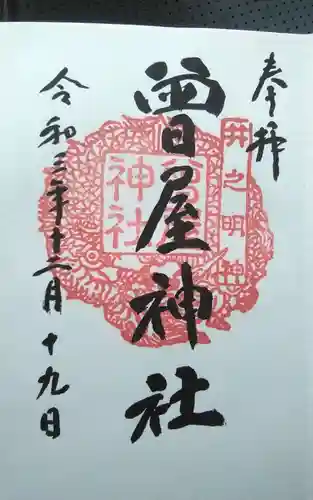 奉拝
井之明神
曾屋神社
神社
令和三年十二月十九日